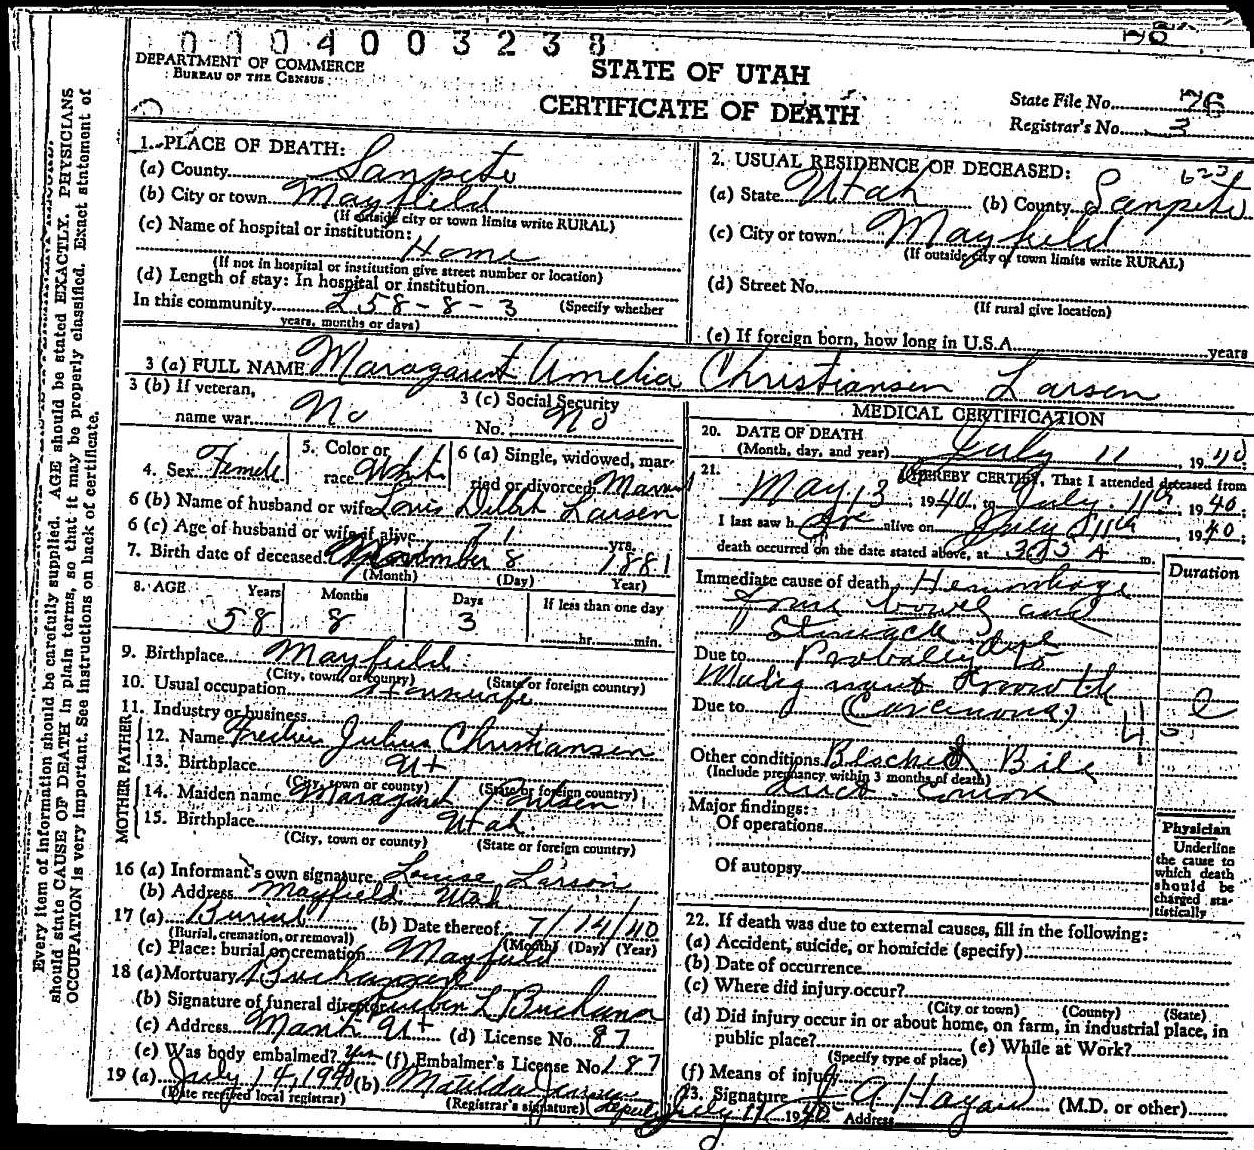 0 0 0 4 0 0 3 2 3 8
76
DEPARTMENT OF COMMERCE
BUREAU OF THE CENSUS
STATE OF UTAH
CERTIFICATE OF DEATH
State File No. 76
Registrar's No. 3
Every item of information should be carefully supplied. AGE should be stated EXACTLY. PHYSICIANS
should state CAUSE OF DEATH in plain terms, so that it may be properly classified. Exact statement of
OCCUPATION is very important. See instructions on back of certificate.
1. PLACE OF DEATH:
(a) County Sanpete
(b) City or town Mayfield
(If outside city or town limits write RURAL)
(c) Name of hospital or institution:
Home
(If not in hospital or institution give street number or location)
(d) Length of stay: In hospital or institution
In this community 58-8-3 (Specify whether
years, months or days)
2. USUAL RESIDENCE OF DECEASED:
(a) State Utah (b) County Sanpete
(c) City or town Mayfield
(If outside city or town limits write RURAL)
(d) Street No.
(If rural give location)
(e) If foreign born, how long in U.S.A. years
3 (a) FULL NAME Maragaret Amelia Christiansen Larsen
3 (b) If veteran,
name war No
3 (c) Social Security
No. No
4. Sex Female
5. Color or
race White
6 (a) Single, widowed, mar-
ried or divorced Married
6 (b) Name of husband or wife Louis Larsen
6 (c) Age of husband or wife if alive 71 yrs.
7. Birth date of deceased November 8 1881
(Month) (Day) Year)
8. AGE Years Months Days If less than one day
58 8 3 hr. min.
9. Birthplace Mayfield
(City, town or county) (State or foreign country)
10. Usual occupation Housewife
11. Industry or business
FATHER
12. Name Julius Christiansen
13. Birthplace Ut
(City, town or county) (State or foreign country)
MOTHER
14. Maiden name Maragaret
15. Birthplace Utah
(City, town or county) (State or foreign country)
16 (a) Informant's own signature Louise Larson
(b) Address Mayfield Utah
17 (a) Burial (b) Date thereof 7/14/40
(Burial, cremation, or removal) (Month) (Day) (Year)
(c) Place: burial or cremation Mayfield
18 (a) Mortuary
(b) Signature of funeral director L Buchanan
(c) Address Manti Ut (d) License No. 87
(e) Was body embalmed? Yes (f) Embalmer's License No. 187
19 (a) July 14, 1940 (b) Matilda
(Date received local registrar) (Registrar's signature) Deputy
MEDICAL CERTIFICATION
20. DATE OF DEATH
(Month, day, and year) July 11, 1940
21. I HEREBY CERTIFY, That I attended deceased from
May 13, 1940, to July 11th, 1940;
I last saw her alive on July 11th, 1940;
death occurred on the date stated above, at 3:05 A m.
Duration
Immediate cause of death Hemorrhage
from bowels and
Stomach due
Due to Probably to
Malignant Growth
Due to (Carcinoma)
Other conditions Blocked Bile
(Include pregnancy within 3 months of death)
duct
Major findings:
Of operations
Of autopsy
Physician
Underline
the cause to
which death
should be
charged sta-
tistically
22. If death was due to external causes, fill in the following:
(a) Accident, suicide, or homicide (specify)
(b) Date of occurrence
(c) Where did injury occur?
(City or town) (County) (State)
(d) Did injury occur in or about home, on farm, in industrial place, in
public place? (e) While at Work?
(Specify type of place)
(f) Means of injury
23. Signature J A Hagan (M.D. or other)
July 11 1940 Address